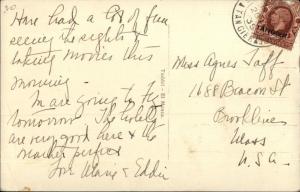 30
Have had a lot of fun
seeing the sights &
taking movies this
morning.
are going to fly
tomorrow. The hotels
are very good here & the
weather perfect
Love Marie & Eddie
Miss Agnes Taff
1688 Beacon St
Brookline
Mass
U.S.A.